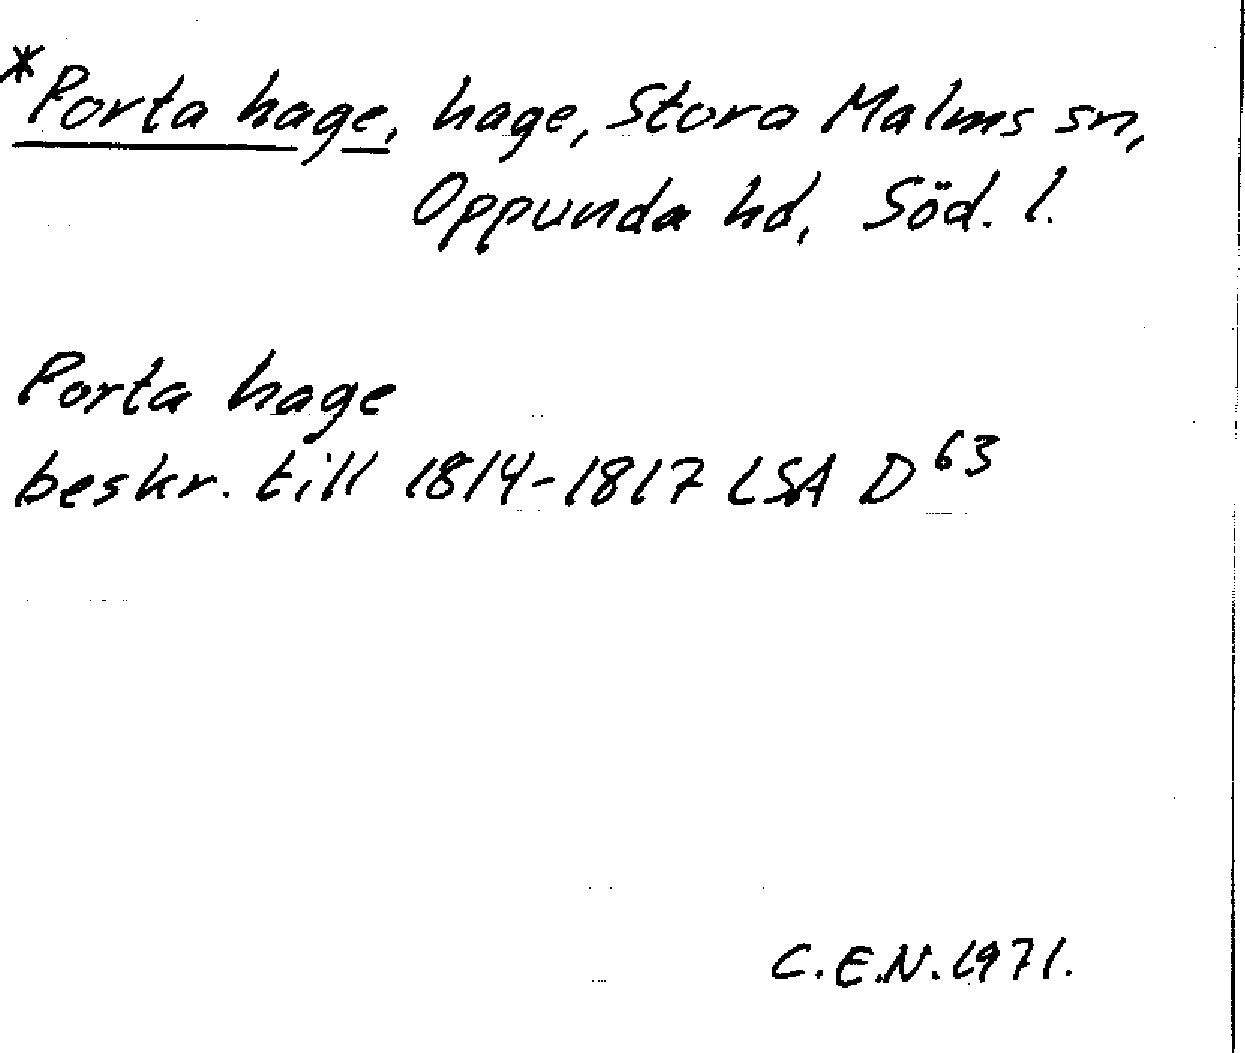 *Porta hage, hage, Stora Malms sn,
Oppunda hd, Söd. l.
Porta hage
beskr. till 1814-1817 LSA D⁶³
C.E.N. 1971.